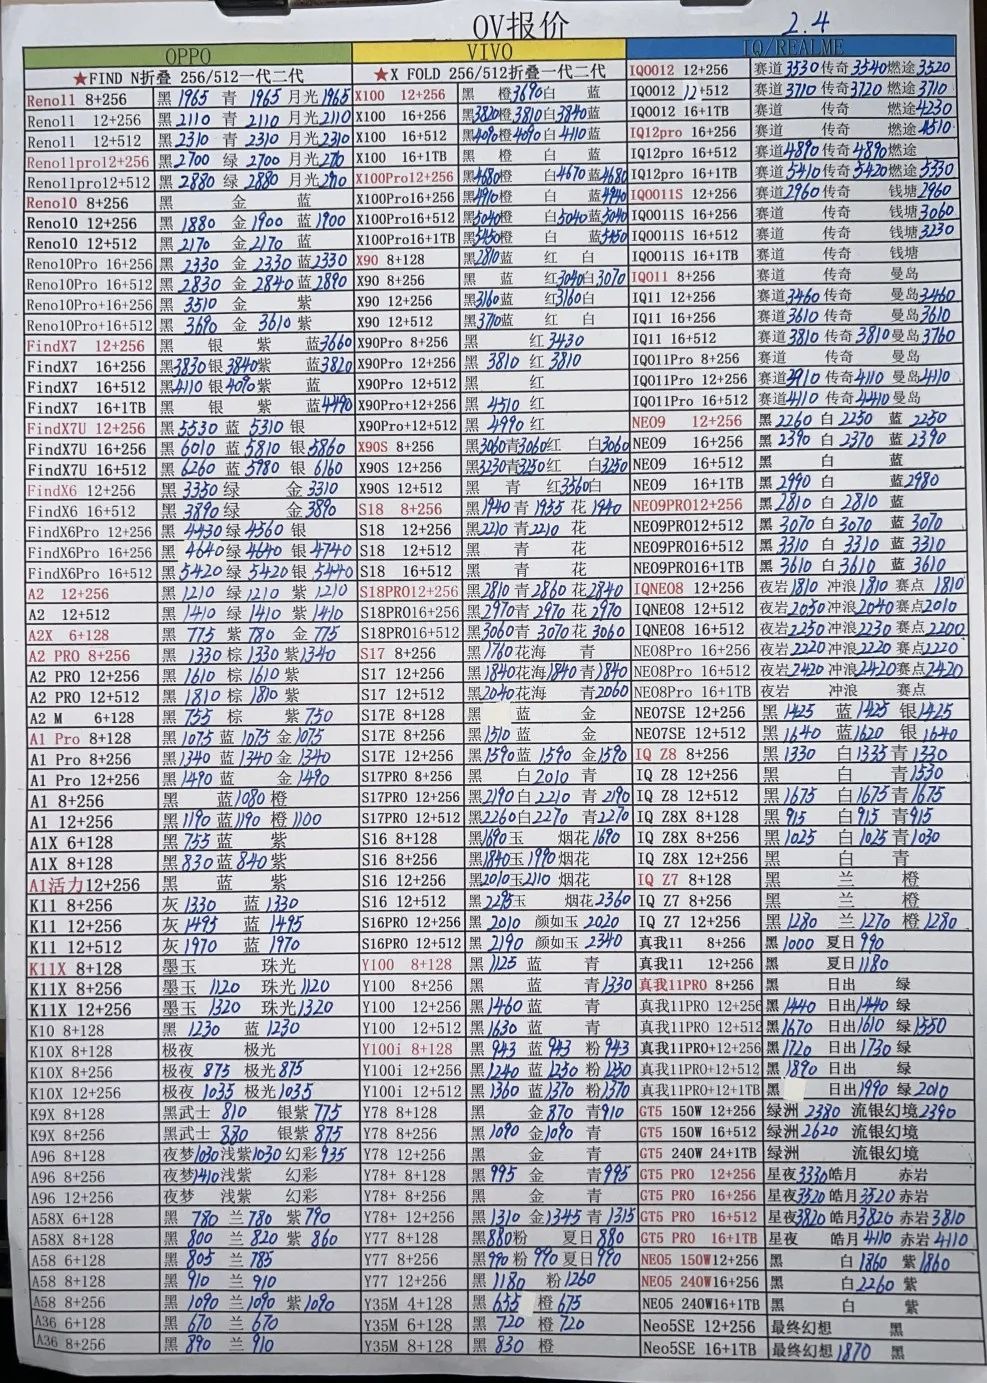 OV报价 2.4
OPPO VIVO IQ/REALME
★FIND N折叠 256/512一代二代 ★X FOLD 256/512折叠一代二代 IQOO12 12+256 赛道3530传奇3540燃途3520
Reno11 8+256 黑 1965 青 1965 月光1965 X100 12+256 黑 橙3690白 蓝 IQOO12 12+512 赛道3710传奇3720燃途3710
Reno11 12+256 黑 2110 青 2110 月光2110 X100 16+256 黑3820橙3810白3840蓝 IQOO12 16+1TB 赛道 传奇 燃途4230
Reno11 12+512 黑 2310 青 2310 月光2310 X100 16+512 黑4090橙4090白4110蓝 IQ12pro 16+256 赛道 传奇 燃途4510
Reno11pro12+256 黑 2700 绿 2700 月光 X100 16+1TB 黑 橙 白 蓝 IQ12pro 16+512 赛道4890传奇4890燃途
Reno11pro12+512 黑 2880 绿 2880 月光 X100Pro12+256 黑4680橙 白4670蓝4680 IQ12pro 16+1TB 赛道5410传奇5420燃途5330
Reno10 8+256 黑 金 蓝 X100Pro16+256 黑4910橙 白 蓝4940 IQOO11S 12+256 赛道2960传奇 钱塘2960
Reno10 12+256 黑 1880 金1900 蓝1900 X100Pro16+512 黑5040橙 白5040蓝5040 IQOO11S 16+256 赛道 传奇 钱塘3060
Reno10 12+512 黑 2170 金2170 蓝 X100Pro16+1TB 黑5450橙 白 蓝5450 IQOO11S 16+512 赛道 传奇 钱塘3230
Reno10Pro 16+256 黑 2330 金 2330蓝2330 X90 8+128 黑2810蓝 红 白 IQOO11S 16+1TB 赛道 传奇 钱塘
Reno10Pro 16+512 黑 2830 金 2840蓝2890 X90 8+256 黑 蓝 红3040白3070 IQO11 8+256 赛道 传奇 曼岛
Reno10Pro+16+256 黑 3510 金 紫 X90 12+256 黑3160蓝 红3160白 IQ11 12+256 赛道3460传奇 曼岛3460
Reno10Pro+16+512 黑 3690 金 3610 紫 X90 12+512 黑3710蓝 红 白 IQ11 16+256 赛道3610传奇 曼岛3610
FindX7 12+256 黑 银 紫 蓝3660 X90Pro 8+256 黑 红3430 IQ11 16+512 赛道3810传奇3810曼岛3760
FindX7 16+256 黑3830银3840紫 蓝3820 X90Pro 12+256 黑 3810 红 3810 IQO11Pro 8+256 赛道 传奇 曼岛
FindX7 16+512 黑4110银4090紫 蓝 X90Pro 12+512 黑 红 IQO11Pro 12+256 赛道 传奇4110曼岛4110
FindX7 16+1TB 黑 银 紫 蓝4490 X90Pro+12+256 黑 4510 红 IQO11Pro 16+512 赛道4110传奇4410曼岛
FindX7U 12+256 黑 5530 蓝 5310 银 X90Pro+12+512 黑 4990 红 NEO9 12+256 黑 2260 白 2250 蓝 2250
FindX7U 16+256 黑 6010 蓝 5810 银 5860 X90S 8+256 黑3060青3060红 白3060 NEO9 16+256 黑 2390 白 2370 蓝 2390
FindX7U 16+512 黑 6260 蓝 5980 银 6160 X90S 12+256 黑3230青3250红 白3250 NEO9 16+512 黑 白 蓝
FindX6 12+256 黑 3350绿 金3310 X90S 12+512 黑 青 红3560白 NEO9 16+1TB 黑 2990 白 蓝2980
FindX6 16+512 黑 3890绿 金3890 S18 8+256 黑1940青1935 花 1940 NEO9PRO12+256 黑 2810 白 2810 蓝
FindX6Pro 12+256 黑 4430绿 4560 银 S18 12+256 黑2210青2210 花 NEO9PRO12+512 黑 3070 白3070 蓝 3070
FindX6Pro 16+256 黑 4640绿 4640 银4740 S18 12+512 黑 青 花 NEO9PRO16+512 黑 3310 白 3310 蓝 3310
FindX6Pro 16+512 黑 5420 绿 5420银5440 S18 16+512 黑 青 花 NEO9PRO16+1TB 黑 3610 白3610 蓝 3610
A2 12+256 黑 1210 绿1210 紫 1210 S18PRO12+256 黑2810青 2860 花2840 IQNEO8 12+256 夜岩1810 冲浪1810 赛点 1810
A2 12+512 黑 1410 绿1410 紫1410 S18PRO16+256 黑2970青2970 花 2970 IQNEO8 12+512 夜岩2050冲浪2040赛点2010
A2X 6+128 黑 775 紫 780 金 775 S18PRO16+512 黑3060青 3070花 3060 IQNEO8 16+512 夜岩2250冲浪2230 赛点2200
A2 PRO 8+256 黑 1330 棕 1330 紫1340 S17 8+256 黑1760花海 青 NEO8Pro 16+256 夜岩2220冲浪2220 赛点2220
A2 PRO 12+256 黑 1610 棕 1610 紫 S17 12+256 黑1840花海1840 青1840 NEO8Pro 16+512 夜岩2420 冲浪2420赛点2420
A2 PRO 12+512 黑 1810 棕 1810 紫 S17 12+512 黑2040花海 青2060 NEO8Pro 16+1TB 夜岩 冲浪 赛点
A2 M 6+128 黑 755 棕 紫 750 S17E 8+128 黑 蓝 金 NEO7SE 12+256 黑 1425 蓝1425 银1425
A1 Pro 8+128 黑1075 蓝1075 金1075 S17E 8+256 黑1510蓝 金 NEO7SE 12+512 黑 1640 蓝1620 银1640
A1 Pro 8+256 黑1340 蓝1340 金1340 S17E 12+256 黑1590蓝 1590 金1590 IQ Z8 8+256 黑 1330 白1335青1330
A1 Pro 12+256 黑1490 蓝 金1490 S17PRO 8+256 黑 白2010 青 IQ Z8 12+256 黑 白 青1530
A1 8+256 黑 蓝1080橙 S17PRO 12+256 黑2190白 2210 青 2190 IQ Z8 12+512 黑 1675 白1675青1675
A1 12+256 黑1190蓝1190 橙1100 S17PRO 12+512 黑2260白2270 青2270 IQ Z8X 8+128 黑 915 白915 青915
A1X 6+128 黑 755 蓝 紫 S16 8+128 黑1690玉 烟花1690 IQ Z8X 8+256 黑 1025 白1025青1030
A1X 8+128 黑830蓝840紫 S16 8+256 黑1840玉1990烟花 IQ Z8X 12+256 黑 白 青
A1活力12+256 黑 蓝 紫 S16 12+256 黑2010玉2110 烟花 IQ Z7 8+128 黑 兰 橙
K11 8+256 灰 1330 蓝 1330 S16 12+512 黑2295玉 烟花2360 IQ Z7 8+256 黑 兰 橙
K11 12+256 灰 1495 蓝 1495 S16PRO 12+256 黑 2010 颜如玉 2020 IQ Z7 12+256 黑 1280 兰 1270 橙 1280
K11 12+512 灰 1970 蓝 1970 S16PRO 12+512 黑 2190 颜如玉 2340 真我11 8+256 黑 1000 夏日 990
K11X 8+128 墨玉 珠光 Y100 8+128 黑 1125 蓝 青 真我11 12+256 黑 夏日1180
K11X 8+256 墨玉 1120 珠光1120 Y100 8+256 黑 蓝 青1330 真我11PRO 8+256 黑 日出 绿
K11X 12+256 墨玉 1320 珠光1320 Y100 12+256 黑1460 蓝 青 真我11PRO 12+256 黑 1440 日出1440 绿
K10 8+128 黑 1230 蓝 1230 Y100 12+512 黑1630 蓝 青 真我11PRO 12+512 黑1670 日出1610 绿 1550
K10X 8+128 极夜 极光 Y100i 8+128 黑 943 蓝943 粉 943 真我11PRO+12+256 黑1720 日出1730 绿
K10X 8+256 极夜 875 极光 875 Y100i 12+256 黑1240 蓝1250 粉1250 真我11PRO+12+512 黑 1890 日出 绿
K10X 12+256 极夜 1035 极光1035 Y100i 12+512 黑1360 蓝1370 粉1370 真我11PRO+12+1TB 黑 日出1990 绿 2010
K9X 8+128 黑武士 810 银紫775 Y78 8+128 黑 金870 青910 GT5 150W 12+256 绿洲 2380 流银幻境2390
K9X 8+256 黑武士 880 银紫875 Y78 8+256 黑 1090 金1090 青 GT5 150W 16+512 绿洲 2620 流银幻境
A96 8+128 夜梦1030浅紫1030 幻彩935 Y78 12+256 黑 金 青 GT5 240W 24+1TB 绿洲 流银幻境
A96 8+256 夜梦1410浅紫 幻彩 Y78+ 8+128 黑 995 金 青995 GT5 PRO 12+256 星夜3330皓月 赤岩
A96 12+256 夜梦 浅紫 幻彩 Y78+ 8+256 黑 金 青 GT5 PRO 16+256 星夜3520皓月3520 赤岩
A58X 6+128 黑 780 兰 780 紫790 Y78+ 12+256 黑 1310 金1345 青 1315 GT5 PRO 16+512 星夜3820 皓月3820 赤岩3810
A58X 8+128 黑 800 兰 820 紫 860 Y77 8+128 黑880粉 夏日 880 GT5 PRO 16+1TB 星夜 皓月4110 赤岩4110
A58 6+128 黑 805 兰 785 Y77 8+256 黑990 粉 990 夏日990 NEO5 150W12+256 黑 白 1860 紫1860
A58 8+128 黑 910 兰 910 Y77 12+256 黑 1180 粉1260 NEO5 240W16+256 黑 白2260 紫
A58 8+256 黑 1090 兰1090 紫1090 Y35M 4+128 黑 655 橙 675 NEO5 240W16+1TB 黑 白 紫
A36 6+128 黑 670 兰 670 Y35M 6+128 黑 720 橙 720 Neo5SE 12+256 最终幻想 黑
A36 8+256 黑 890 兰 910 Y35M 8+128 黑 830 橙 Neo5SE 16+1TB 最终幻想1870 黑